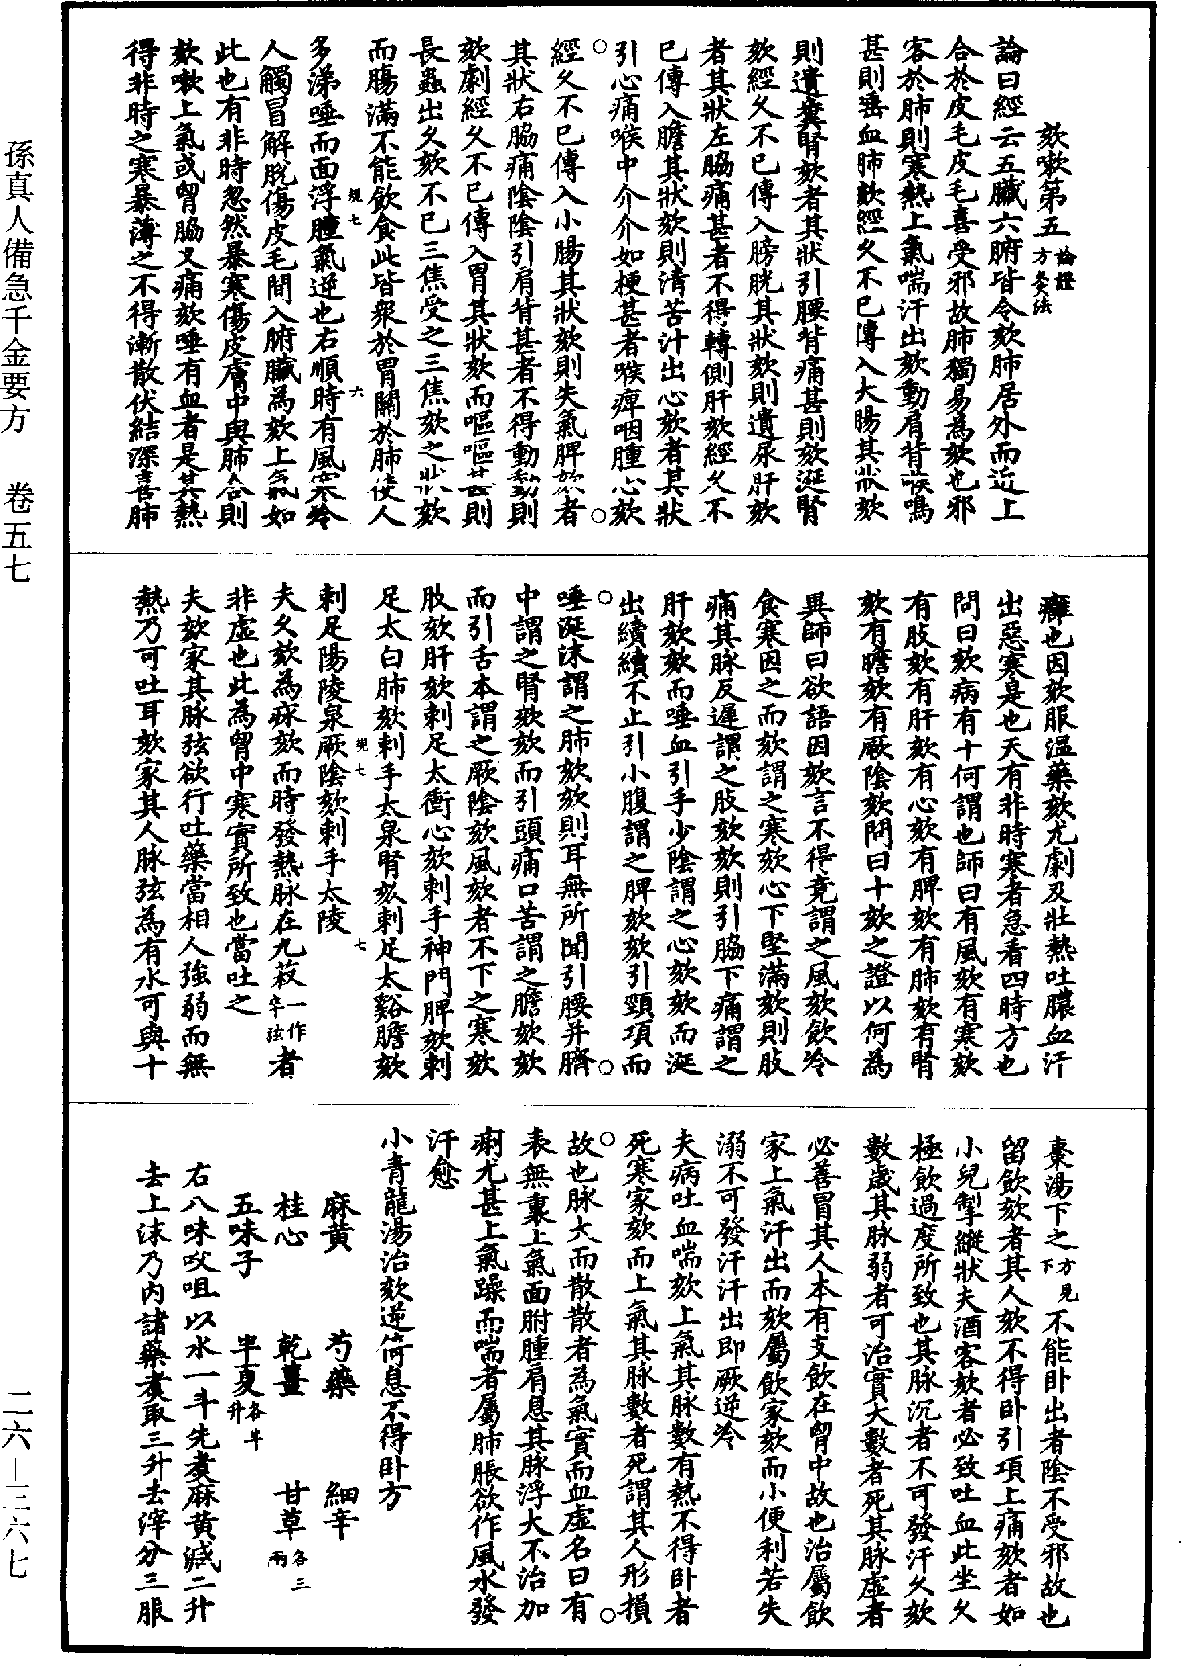 欬嗽第五論證方灸法
論曰經云五臟六腑皆令欬肺居外而近上
合於皮毛皮毛喜受邪故肺獨易為欬也邪
客於肺則寒熱上氣喘汗出欬動肩背喉鳴
甚則唾血肺欬經久不已傳入大腸其狀欬
則遺糞腎欬者其狀引腰背痛甚則欬涎腎
欬經久不已傳入膀胱其狀欬則遺尿肝欬
者其狀左脇痛甚者不得轉側肝欬經久不
已傳入膽其狀欬則清苦汁出心欬者其狀
引心痛喉中介介如梗甚者喉痺咽腫心欬
經久不已傳入小腸其狀欬則失氣脾欬者
其狀右脇痛陰陰引肩背甚者不得動動則
欬劇經久不已傳入胃其狀欬而嘔嘔甚則
長蟲出久欬不已三焦受之三焦欬之狀欬
而腸滿不能飲食此皆聚於胃關於肺使人
多涕唾而面浮腫氣逆也右順時有風寒冷
人觸冒解脫傷皮毛間入腑臟為欬上氣如
此也有非時忽然暴寒傷皮膚中與肺合則
欬嗽上氣或胷脇叉痛欬唾有血者是其熱
得非時之寒暴薄之不得漸散伏結深喜肺
癰也因欬服溫藥欬尤劇及壯熱吐膿血汗
出惡寒是也天有非時寒者急看四時方也
問曰欬病有十何謂也師曰有風欬有寒欬
有肢欬有肝欬有心欬有脾欬有肺欬有腎
欬有膽欬有厥陰欬問曰十欬之證以何為
異師曰欲語因欬言不得竟謂之風欬飲冷
食寒因之而欬謂之寒欬心下堅滿欬則肢
痛其脉反遲謂之肢欬欬則引脇下痛謂之
肝欬欬而唾血引手少陰謂之心欬欬而涎
出續續不止引小腹謂之脾欬欬引頸項而
唾涎沫謂之肺欬欬則耳無所聞引腰并臍
中謂之腎欬欬而引頭痛口苦謂之膽欬欬
而引舌本謂之厥陰欬風欬者不下之寒欬
肢欬肝欬刺足太衝心欬刺手神門脾欬刺
足太白肺欬刺手太泉腎欬刺足太谿膽欬
刺足陽陵泉厥陰欬刺手太陵
夫久欬為疢欬而時發熱脉在九菽一作卒弦者
非虛也此為胷中寒實所致也當吐之
夫欬家其脉弦欲行吐藥當相人強弱而無
熱乃可吐耳欬家其人脉弦為有水可與十
棗湯下之方見下不能卧出者陰不受邪故也
留飲欬者其人欬不得卧引項上痛欬者如
小兒掣縱狀夫酒客欬者必致吐血此坐久
極飲過度所致也其脉沉者不可發汗久欬
數歲其脉弱者可治實大數者死其脉虛者
必善冒其人本有支飲在胷中故也治屬飲
家上氣汗出而欬屬飲家欬而小便利若失
溺不可發汗汗出即厥逆冷
夫病吐血喘欬上氣其脉數有熱不得卧者
死寒家欬而上氣其脉數者死謂其人形損
故也脉大而散散者為氣實而血虛名曰有
表無裏上氣面胕腫肩息其脉浮大不治加
痢尤甚上氣躁而喘者屬肺脹欲作風水發
汗愈
小青龍湯治欬逆倚息不得卧方
麻黃 芍藥 細辛
桂心 乾薑 甘草各三兩
五味子 半夏各半升
右八味㕮咀以水一斗先煮麻黃減二升
去上沫乃内諸藥煮取三升去滓分三服
孫真人備急千金要方 卷五七 二六—三六七